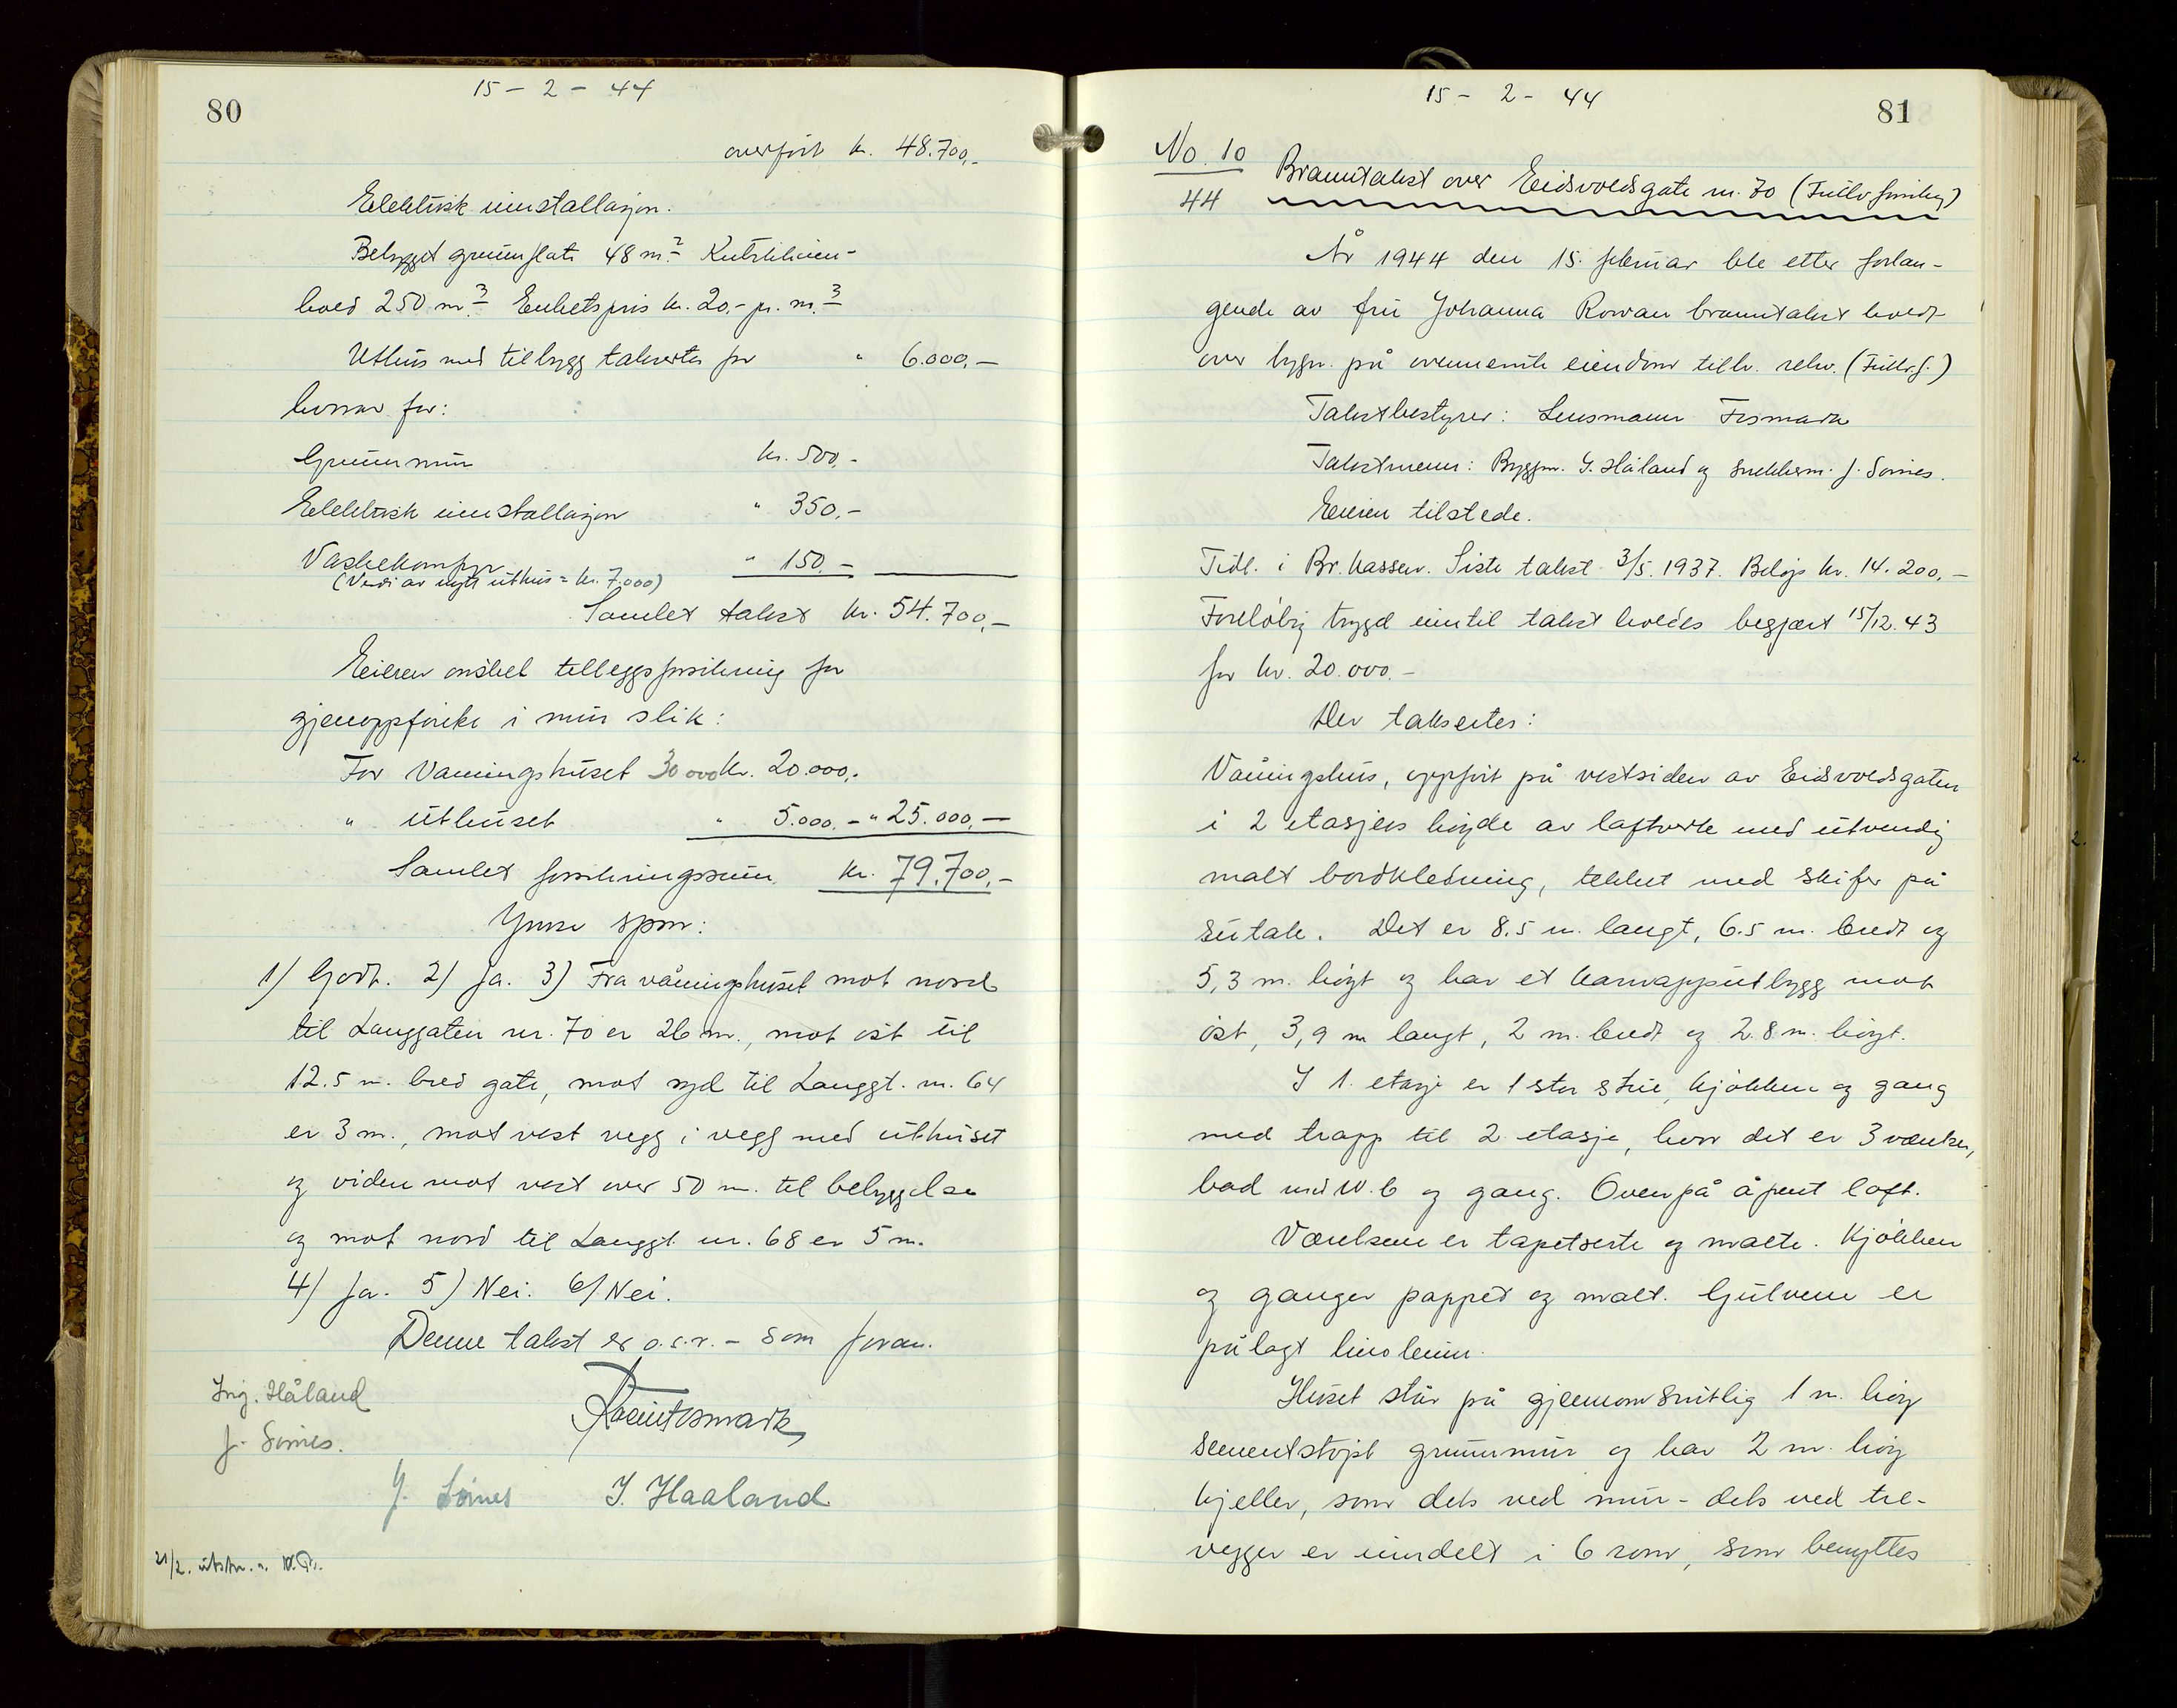 80
15 - 2 - 44
overført kr. 48.700,-
Elektrisk innstallasjon.
Bebygget grunnflate 48 m.² Kubikkinn-
hold 250 m.³ Enhetspris kr. 20,- pr. m.³
Uthus med tilbygg takseres for " 6.000,-
hvorav for:
Grunnmur kr. 500,-
Elektrisk innstallasjon " 350,-
Vaskekomfyr " 150,-
(Verdi av nytt uthus = kr. 7.000)
Samlet takst kr. 54.700,-
Eieren ønsket tilleggsforsikring for
gjenoppførelse i mur slik:
For Våningshuset 30000 kr. 20.000,-
" uthuset " 5.000,- " 25.000,-
Samlet forsikringssum kr. 79.700,-
Ymse spm:
1) Godt. 2) Ja. 3) Fra våningshuset mot nord
til Langgaten nr. 70 er 26 m., mot øst til
12.5 m. bred gate, mot syd til Langgt. nr. 64
er 3 m., mot vest vegg i vegg med uthuset
og videre mot vest over 50 m. til bebyggelse
og mot nord til Langgt. nr. 68 er 5 m.
4) Ja. 5) Nei. 6) Nei.
Denne takst er o.s.v. - som foran.
Ing. Håland
J. Sømes.
J. Sømes I. Haaland
21/2. utskr.
81
15 - 2 - 44
No. 10
44
Branntakst over Eidsvoldsgate nr. 70 (Fullv. forsikng)
År 1944 den 15. februar ble etter forlan-
gende av fru Johanna Rowan branntakst holdt
over bygn. på ovennemte eiendom tilh. rekv. (Fullv. f.)
Takstbestyrer: Lensmann Fosmark
Takstmenn: Byggm. I. Håland og snekkerm. J. Sømes.
Eieren tilstede.
Tidl. i Br. kassen. Siste takst 3/5. 1937. Beløp kr. 14.200,-
Foreløbig trygd inntil takst holdes begjært 15/12. 43
for kr. 20.000,-
Der takseres:
Våningshus, oppført på vestsiden av Eidsvoldsgaten
i 2 etasjers høyde av laftverk med utvendig
malt bordkledning, tekket med skifer på
sutak. Det er 8.5 m. langt, 6.5 m. bredt og
5,3 m. høyt og har et karnapputbygg mot
øst, 3,9 m langt, 2 m. bredt og 2.8 m. høyt.
I 1. etasje er 1 stor stue, kjøkken og gang
med trapp til 2. etasje, hvor det er 3 værelser,
bad med W.C og gang. Ovenpå åpent loft.
Værelsene er tapetserte og malte. Kjøkken
og ganger pappet og malt. Gulvene er
pålagt linoleum.
Huset står på gjennomsnittlig 1 m. høy
sementstøpt grunnmur og har 2 m. høy
kjeller, som dels ved mur - dels ved tre-
vegger er inndelt i 6 rom, som benyttes